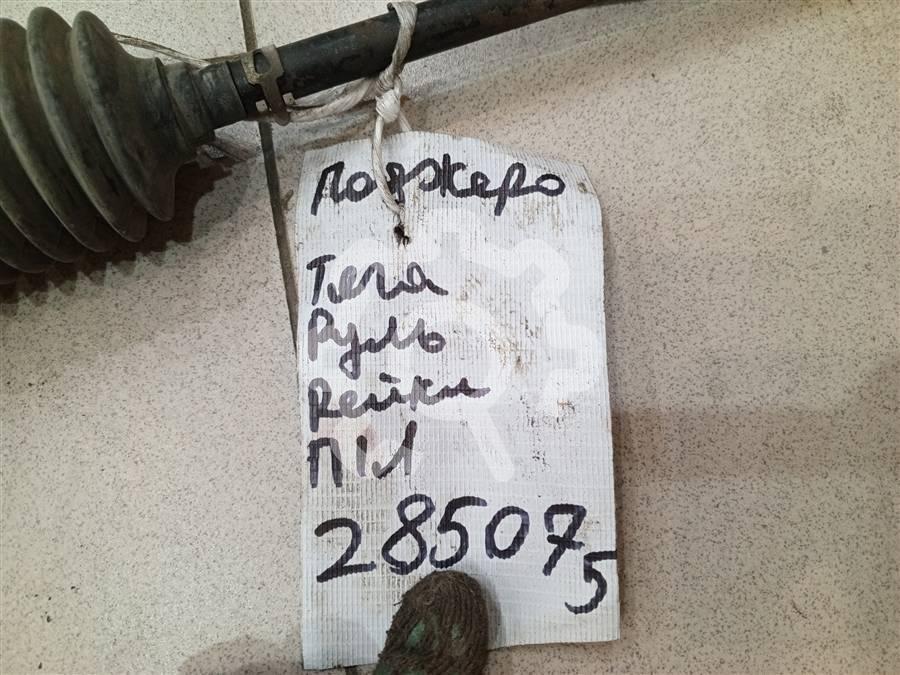 Поджеро
Тяга
Руль
Рейки
П/Л
285075